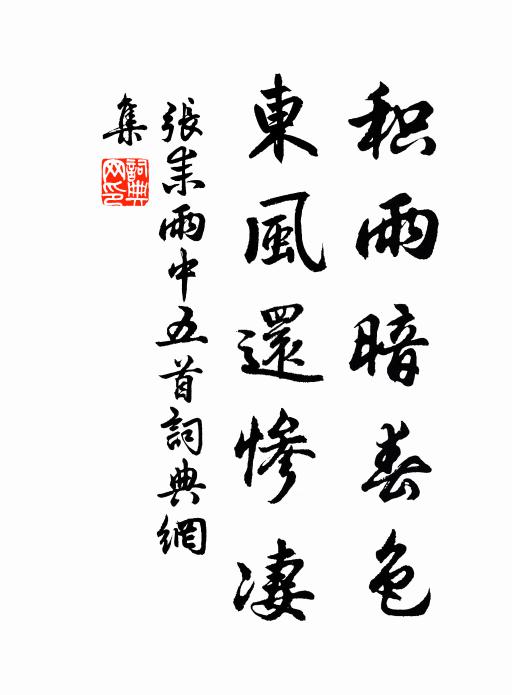 积雨暗春色
東風還慘凄
張耒雨中五首詞典網
集
詞典
网印